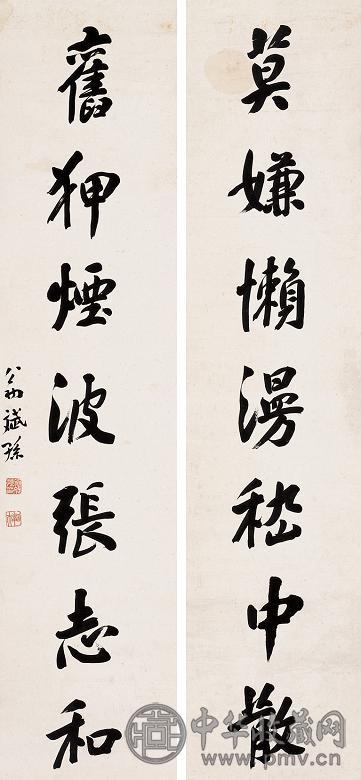 莫嫌懶漫嵇中散
舊狎煙波張志和
翁斌孫
中华收藏网
www.pmv.cn